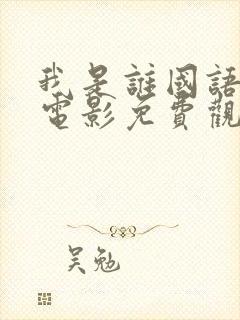 我是誰國語
電影免費觀
吴勉